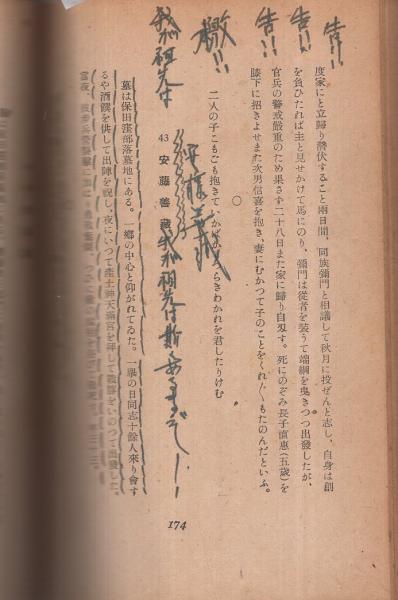 告!!
告!!
告!!
檄!!
我が祖先は
度家にと立歸り潛伏すること兩日間、同族彌門と相議して秋月に投ぜんと志し、自身は創
を負ひたれば主と見せかけて馬にのり、彌門は從者を裝うて端綱を曳きつつ出發したが、
官兵の警戒嚴重のため果さず二十八日また家に歸り自刄す。死にのぞみ長子直惠(五歲)を
膝下に招きよせまた次男信喜を抱き、妻にむかつて子のことをくれ〲もたのんだといふ。
○
二人の子こもごも抱きて
らきわかれを君したりけむ
43 安藤善
我が祖先は斯くあるぞ
墓は保田窪部落墓地にある。一鄕の中心と仰がれてゐた。一擧の日同志十餘人來り會す
るや酒饌を供して出陣を祝し、夜にいつて產土神天滿宮を拜して戰勝をいのつて出發した。
當夜、
174